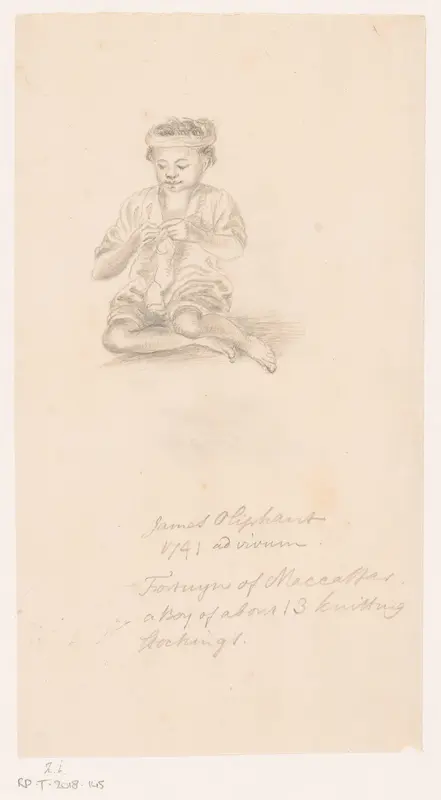 James Oliphant
1741 ad vivum.
Fortuyn of Maccassar.
a Boy of about 13 knitting
stockings.
2i
RP-T-2018-145